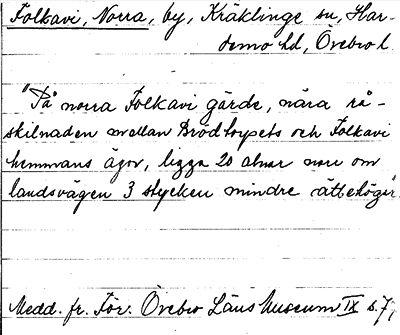 Folkavi, Norra, by, Kräklinge sn, Har-
demo hd, Örebro l.
"På norra Folkavi gärde, nära rå-
skilnaden mellan Brödtorpets och Folkavi
hemmans ägor, ligga 20 alnar norr om
landsvägen 3 stycken mindre ättehögar.
Medd. fr. För. Örebro Läns Museum IX s. 7,